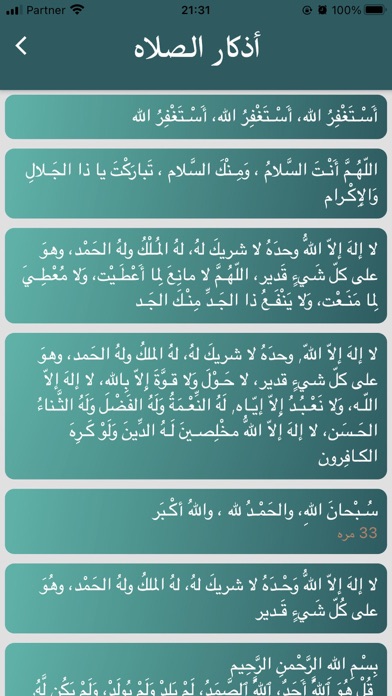 Partner 21:31 100%
أذكار الصلاه
أَسْـتَغْفِرُ الله، أَسْـتَغْفِرُ الله، أَسْـتَغْفِرُ الله
اللّهُـمَّ أَنْـتَ السَّلامُ ، وَمِـنْكَ السَّلام ، تَبارَكْتَ يا ذا الجَـلالِ
وَالإِكْـرام
لا إلهَ إلاّ اللّهُ وحدَهُ لا شريكَ لهُ، لهُ المُـلْكُ ولهُ الحَمْد، وهوَ
على كلّ شَـيءٍ قَدير، اللّهُـمَّ لا مانِعَ لِما أَعْطَـيْت، وَلا مُعْطِـيَ
لِما مَنَـعْت، وَلا يَنْفَـعُ ذا الجَـدِّ مِنْـكَ الجَـد
لا إلهَ إلاّ اللّه, وحدَهُ لا شريكَ لهُ، لهُ الملكُ ولهُ الحَمد، وهوَ
على كلّ شيءٍ قدير، لا حَـوْلَ وَلا قـوَّةَ إِلاّ بِاللهِ، لا إلهَ إلاّ
اللّـه، وَلا نَعْـبُـدُ إِلاّ إيّـاه, لَهُ النِّعْـمَةُ وَلَهُ الفَضْل وَلَهُ الثَّـناءُ
الحَـسَن، لا إلهَ إلاّ اللّهُ مخْلِصـينَ لَـهُ الدِّينَ وَلَوْ كَـرِهَ
الكـافِرون
سُـبْحانَ اللهِ، والحَمْـدُ لله ، واللهُ أكْـبَر
33 مره
لا إلهَ إلاّ اللّهُ وَحْـدَهُ لا شريكَ لهُ، لهُ الملكُ ولهُ الحَمْد، وهُوَ
على كُلّ شَـيءٍ قَـدير
بِسْمِ اللهِ الرَّحْمنِ الرَّحِيم
قُلْ هُوَ ٱللَّهُ أَحَدٌ، ٱللَّهُ ٱلصَّمَدُ، لَمْ يَلِدْ وَلَمْ يُولَدْ، وَلَمْ يَكُن لَّهُۥ